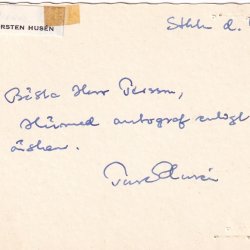 ORSTEN HUSÉN
Sthlm d.
Bästa Herr Persson,
Härmed autograf enligt
önskan.
Torsten Husén